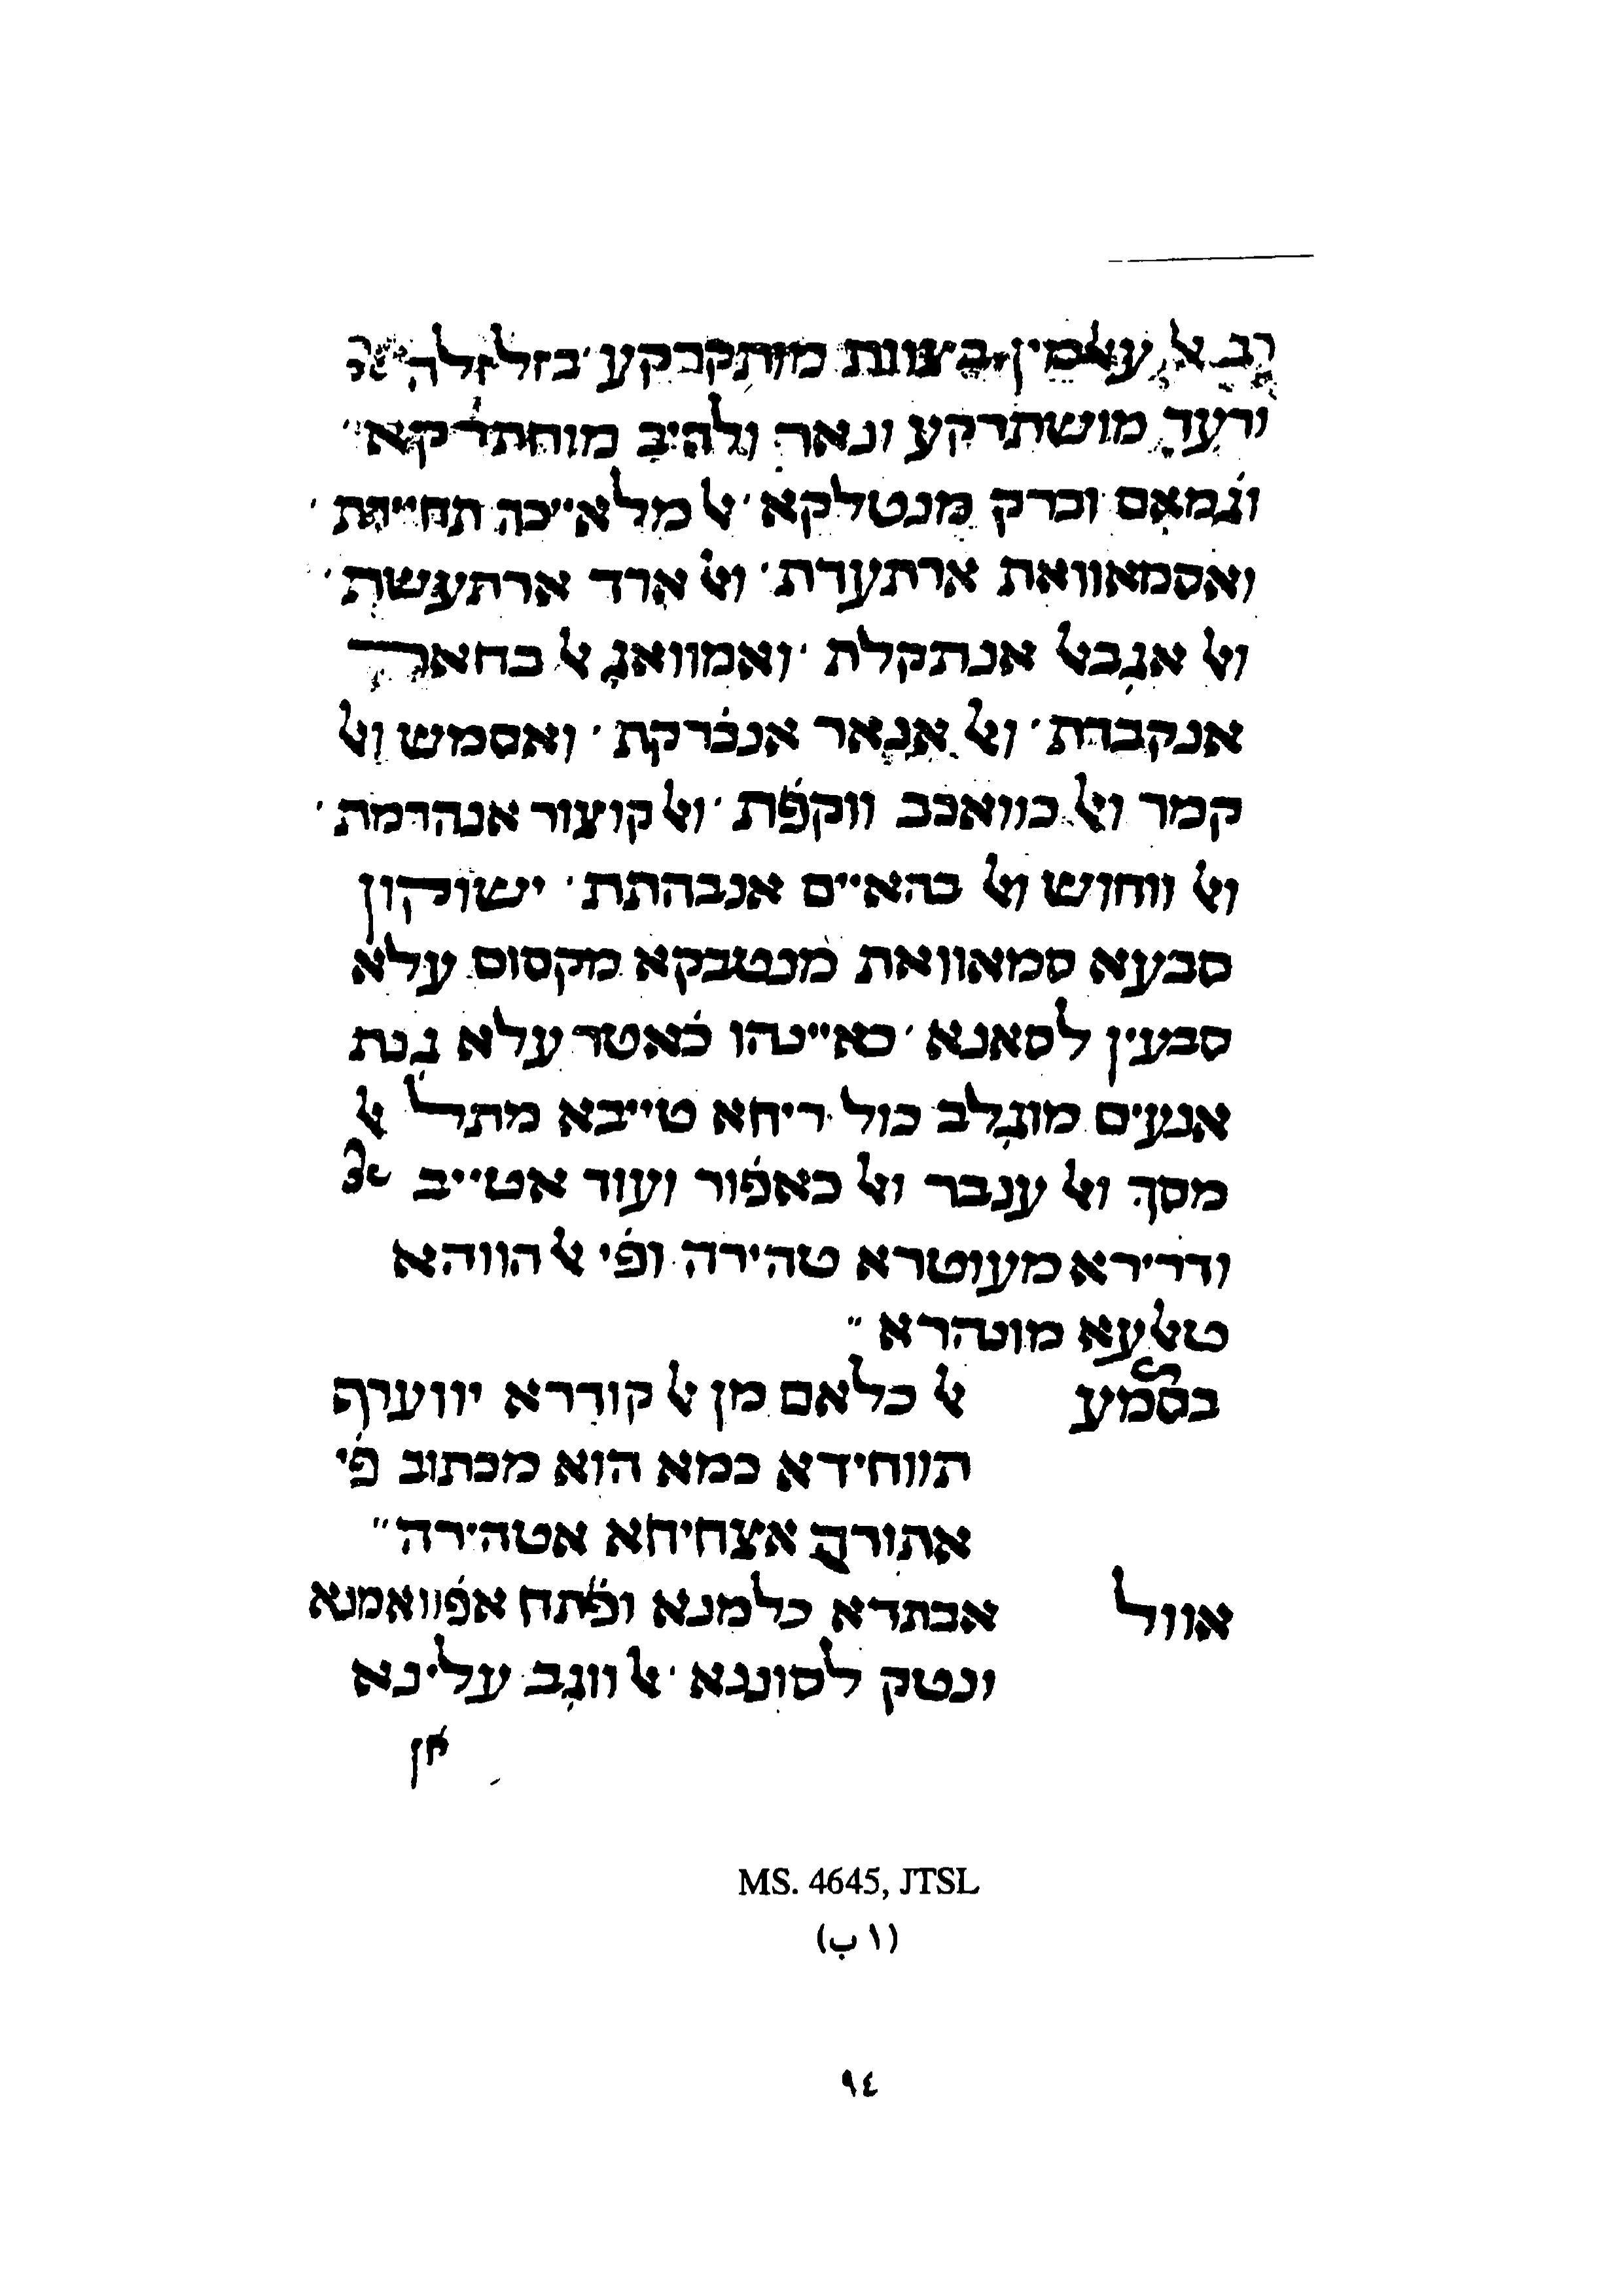 רב אל עאלמין בצוות מותקרקע׳ בזלזלה
ורעד מושתרקע ונאר ולהיב מוחתרקא׳
וגמאם וברק מנטלקא׳ אל מלאייכה תחיירת׳
ואסמאוואת ארתעדת׳ ואל ארד ארתעשת׳
ואל אגבאל אנתקלת׳ ואמוואג אל בחאר
אנקברת׳ ואל אנאר אנכרקת׳ ואסמש ואל
קמר ואל כוואכב ווקפֿת׳ ואל קועור אנהדמת׳
ואל ווחוש ואל בהאיים אנבהתת׳ ישוקון
סבעא סמאוואת מנטבקא מקסום עלא
סבעין לסאנא׳ כאייטהו כֿאטר עלא גנת
אנעים מוגלב כול ריחא טייבא מתל אל
מסך ואל ענבר ואל כאפֿור ועוד אטייב
ודרירא מעוטרא טהירה ופֿי אל הווהא
טאלעא מוטהרא״
בסמע אל כלאם מן אל קודרא יוועריף
תווחידא כמא הוא מכתוב פֿי
אתורה אצחיחא אטהירה״
אוול אבתדא כלמנא ופֿתח אפֿוואמנא
ונטק לסוננא׳ אל ווגב עלינא
אן
MS. 4645, JTSL
(١ب)
٩٤